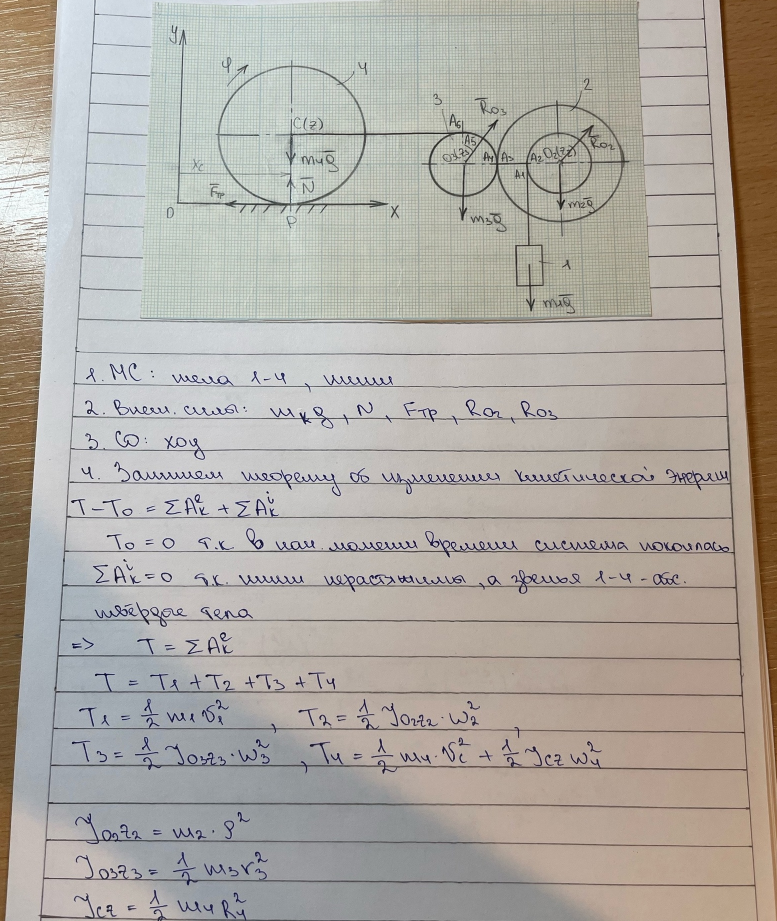 y
φ
4
C(z)
m₄g̅
x_c
N̅
F̅тр
0
P
X
3
A₆
A₅
R̅o₃
O₃(z₃)
A₄
A₃
m₃g̅
2
A₂
O₂(z₂)
R̅o₂
A₁
m₂g̅
1
m₁g̅
1. МС: тела 1-4, нити
2. Внеш. силы: mₖg, N, Fтр, Ro₂, Ro₃
3. СО: xoy
4. Запишем теорему об изменении кинетической энергии
T-T₀ = ΣAₖᵉ + ΣAₖⁱ
T₀ = 0 т.к в нач. момент времени система покоилась
ΣAₖⁱ=0 т.к. нити нерастяжимы, а звенья 1-4 - абс.
твёрдые тела
=> T = ΣAₖᵉ
T = T₁ + T₂ + T₃ + T₄
T₁ = 1/2 m₁ v₁², T₂ = 1/2 Jo₂z₂ · ω₂²,
T₃ = 1/2 Jo₃z₃ · ω₃², T₄ = 1/2 m₄ · v_c² + 1/2 J_cz ω₄²
Jo₂z₂ = m₂ · ρ²
Jo₃z₃ = 1/2 m₃r₃²
J_cz = 1/2 m₄R₄²